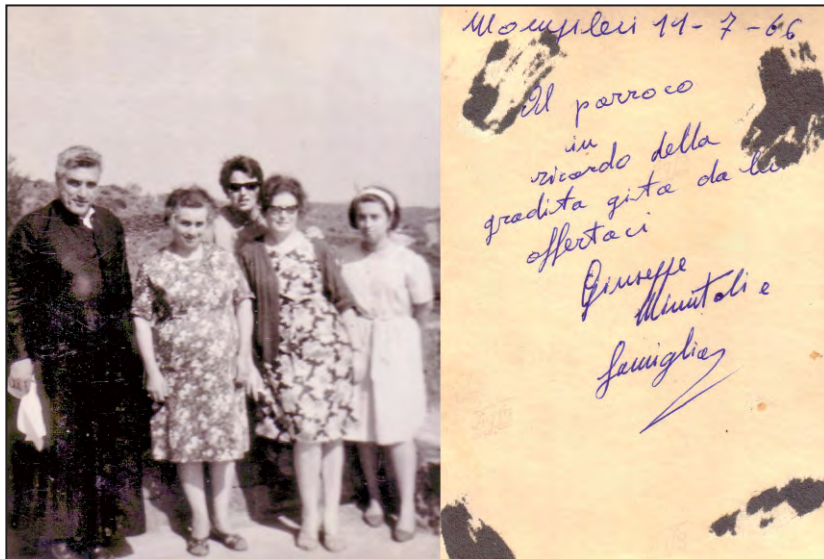 Mompileri 11-7-66
Al parroco
in
ricordo della
gradita gita da lui
offertaci
Giuseppe
Minutoli e
famiglia